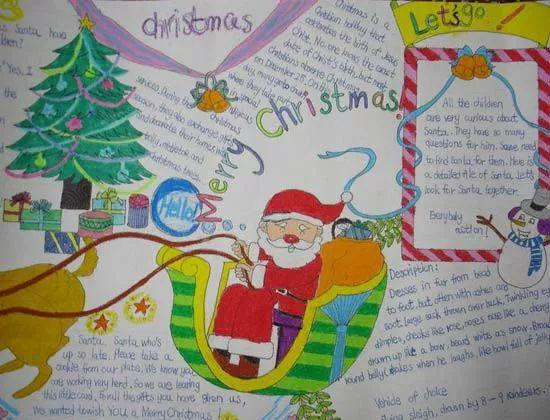 christmas
Let's go!
Santa have
"Yes. I
the
Christmas is a
Christian holiday that
celebrates the birth of Jesus
Christ. No one knows the exact
date of Christ's birth, but most
Christians observe Christmas
on December 25. On
many go to
where they take part
in special religious
services. During the Christmas
season, they also exchange gifts
and decorate their homes with
holly, mistletoe and
christmas trees.
Merry Christmas!
Hello!
All the children
are very curious about
Santa. They have so many
questions for him. So we need
to find Santa for them. Here is
a detailed file of Santa. Let's
look for Santa together.
Description:
Dresses in fur from head
to foot, but often with ashes and
soot, large sack thrown over back. Twinkling
dimples, cheeks like rose, nose like a
drawn up like a bow, beard white as snow. Broad
round belly shakes when he laughs, like bowl of jelly
Vehicle of choice
flying sleigh, drawn by 8-9 reindeers.
Santa, Santa who's
up so late. Please take a
cookie from our plate. We know you
are working very hard, So we are leaving
this little card. For all the gifts you have given us,
We wanted to wish you a Merry Christmas!